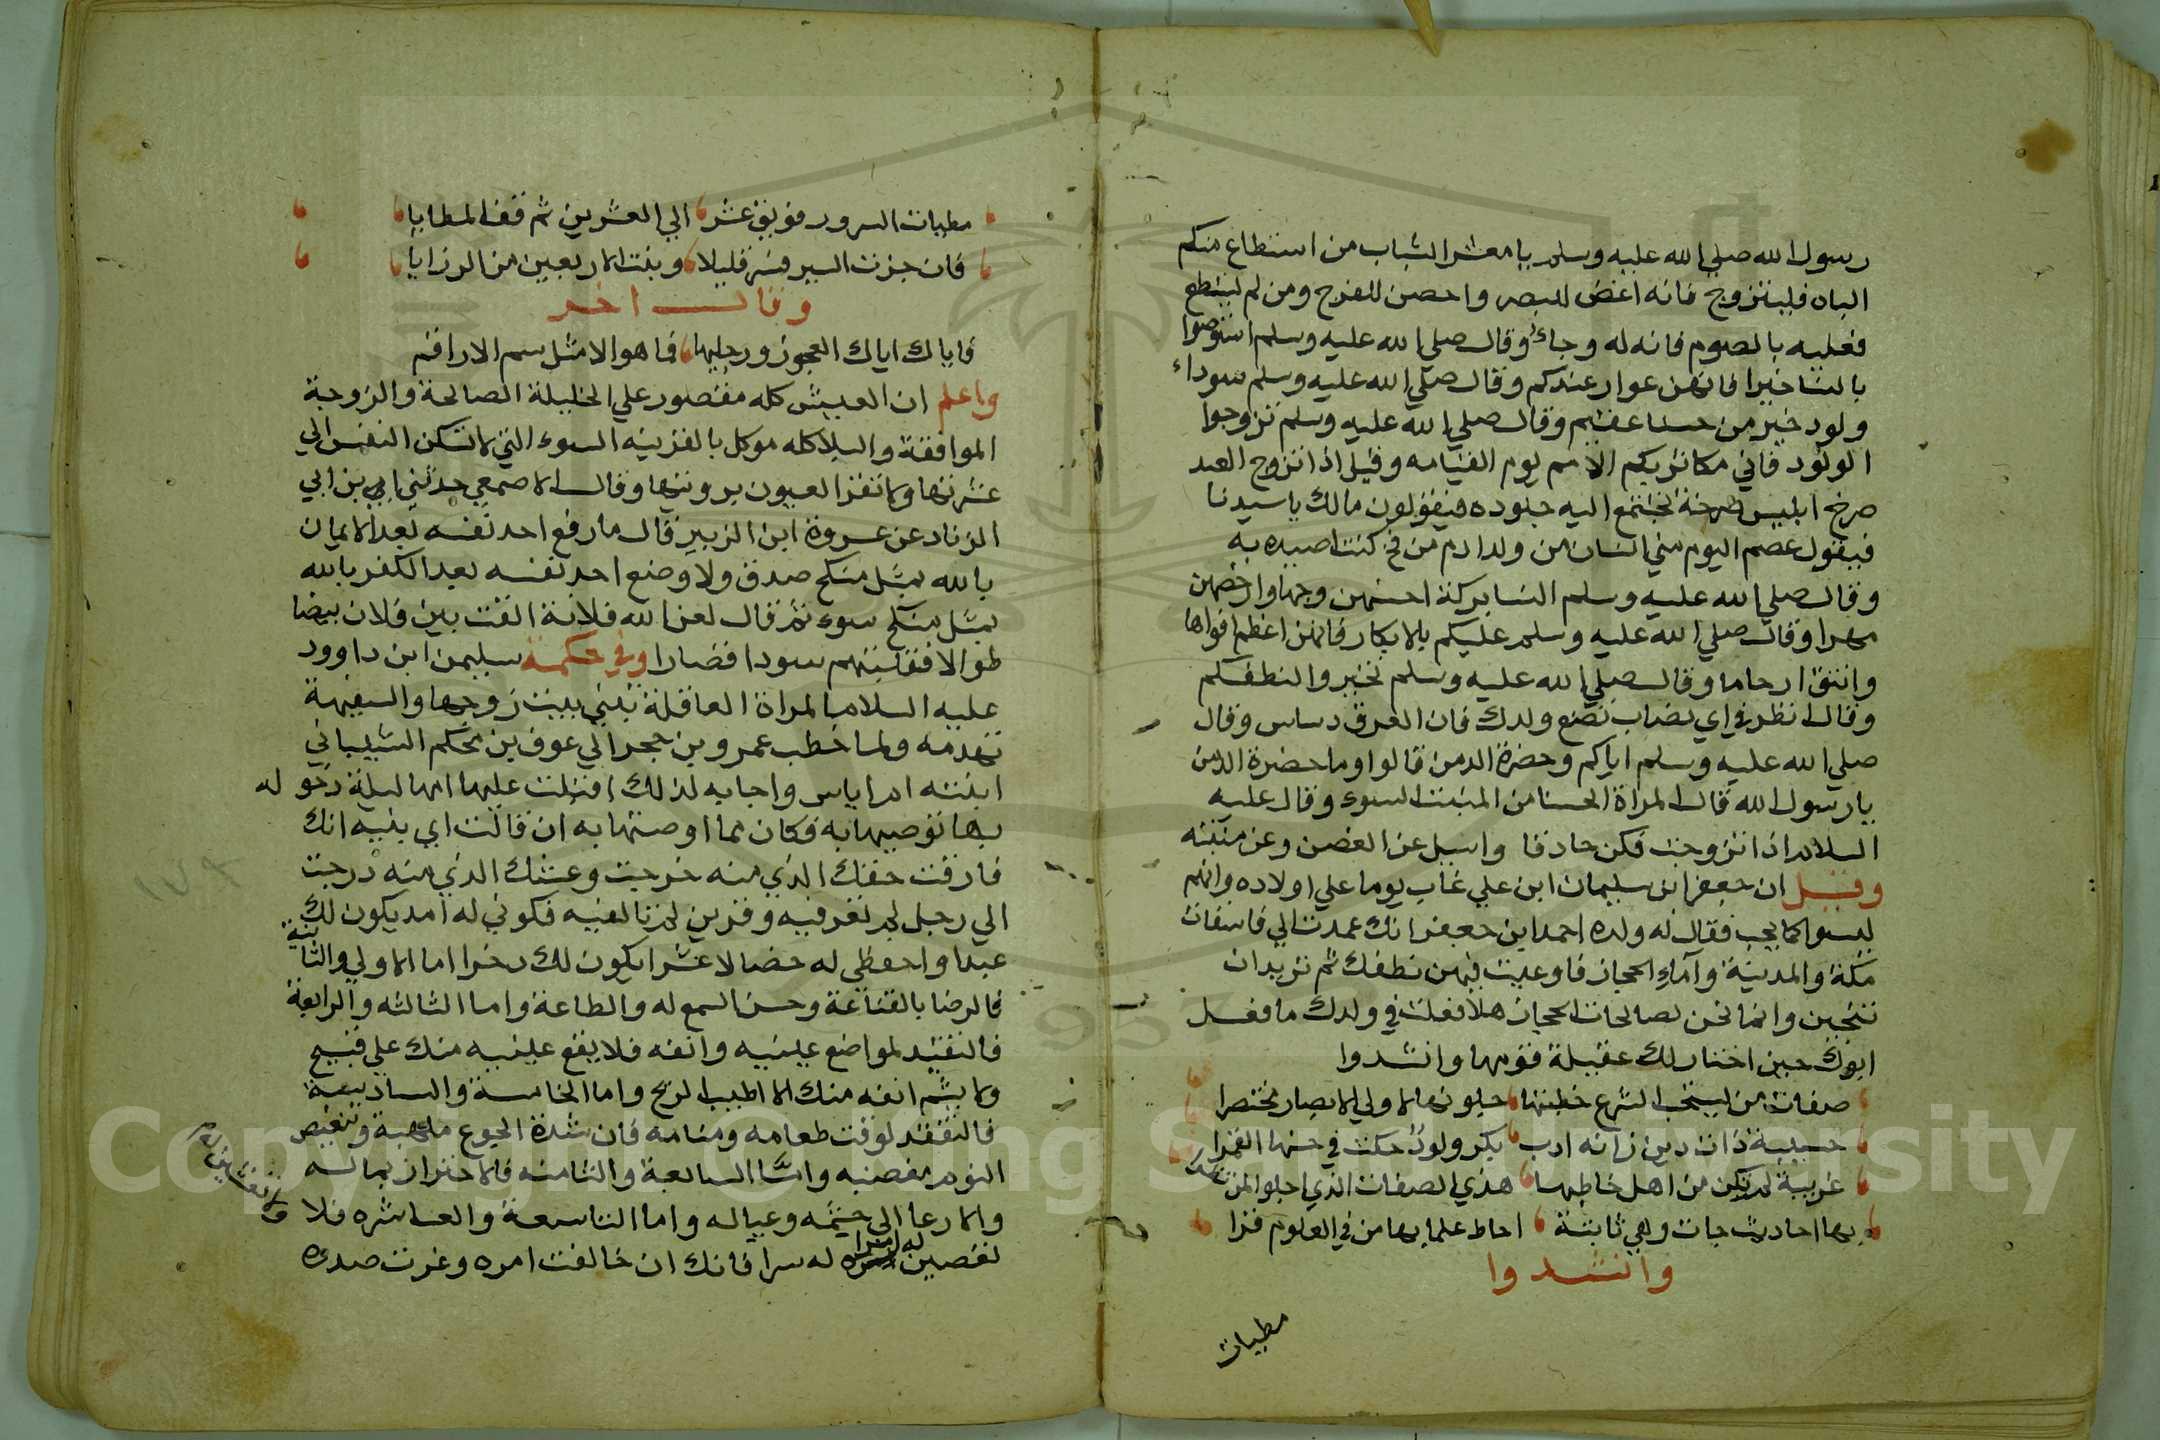 رسول الله صلي الله عليه وسلم يا معشر الشباب من استطاع منكم
الباه فليتزوج فانه اغض للبصر واحصن للفرج ومن لم يستطع
فعليه بالصوم فانه له وجاء وقال صلي الله عليه وسلم استوصوا
بالنسا خيرا فانهن عوار عندكم وقال صلي الله عليه وسلم سوداء
ولود خير من حسنا عقيم وقال صلي الله عليه وسلم تزوجوا
الولود فاني مكاثر بكم الامم يوم القيامه وقيل اذا تزوج العبد
صرخ ابليس صرخة تجتمع اليه جنوده فيقولون مالك يا سيدنا
فيقول عصم اليوم مني انسان من ولد ادم من فخ كنت اصيده به
وقال صلي الله عليه وسلم النسا بركة احسنهن وجها وارخصهن
مهرا وقال صلي الله عليه وسلم عليكم بالابكار فانهن اعظم افواها
وانتق ارحاما وقال صلي الله عليه وسلم تخيروا لنطفكم
وقال انظر في اي نصاب تضع ولدك فان العرق دساس وقال
صلي الله عليه وسلم اياكم وخضرة الدمن قالوا وما خضرة الدمن
يا رسول الله قال المراة الحسنا من المنبت السوء وقال عليه
السلام اذا تزوجت فكن حاذقا واسيل عن الغصن وعن منبته
وقيل ان جعفر ابن سليمان ابن علي عاب يوما علي اولاده وانهم
ليسوا كما يحب فقال له ولده احمد ابن جعفر انك عمدت الي فاسقات
مكة والمدينة واماء الحجاز فاوعيت فيهن نطفك ثم تريد ان
تنجبن وانما نحن لصالحات الحجاز هلا فعلت في ولدك ما فعل
ابوك حين اختار لك عقيلة قومها وانشدوا
صفات من يستحب الشرع خطبتها جلوتها لاولي الابصار مختصرا
حسيبة ذات دين زانه ادب بكر ولود حكت في حسنها القمرا
غريبة لم تكن من اهل خاطبها هذي الصفات الذي اجلو لمن
بها احاديث جات وهي ثابتة احاط علما بها من في العلوم قرا
وانشدوا
مطيات
مطيات السرور فويق عشر الي العشرين ثم قف المطايا
فان جزت السير فسر قليلا وبنت الاربعين من الرزايا
وقال اخر
فاياك اياك العجوز ورجليها فما هو الا مثل سم الاراقم
واعلم ان العيش كله مقصور علي الخليلة الصالحة والزوجة
الموافقة والبلا كله موكل بالقرينه السوء التي لا تسكن النفس الي
عشرتها ولا تقر العيون برويتها وقال الاصمعي حدثني ابي بن ابي
الزناد عن عروة ابن الزبير قال ما رفع احد نفسه بعد الايمان
بالله بمثل منكح صدق ولا وضع احد نفسه بعد الكفر بالله
بمثل منكح سوء ثم قال لعن الله فلانة الفت بين فلان بيضا
طوالا فقلبتهم سودا قصارا وفي حكمة سليمن ابن داوود
عليه السلام المراة العاقلة تبني بيت زوجها والسفيهة
تهدمه ولما خطب عمرو بن حجر الي عوف بن محكم الشيباني
ابنته ام اياس واجابه لذلك اقبلت عليها امها ليلة دخوله
بها توصيها به فكان مما اوصتها به ان قالت اي بنيه انك
فارقت حفك الذي منه خرجت وعشك الذي منه درجت
الي رجل لم تعرفيه وقرين لم تالفيه فكوني له امة يكون لك
عبدا واحفظي له خصالا عشرا يكون لك دخرا اما الاولي والثانية
فالرضا بالقناعة وحسن السمع له والطاعة واما الثالثه والرابعة
فالتفقد لمواضع عينيه وانفه فلا يقع عينيه منك علي قبيح
ولا يشم انفه منك الا اطيب الريح واما الخامسة والسادسة
فالتفقد لوقت طعامه ومنامه فان شدة الجوع ملهبة وتنغيص
النوم مغضبه واما السابعة والثامنه فالاحتراز بماله
والارعا الي حشمه وعياله واما التاسعة والعاشره فلا
تعصين له امرا له سرا فانك ان خالفت امره وغرت صدره